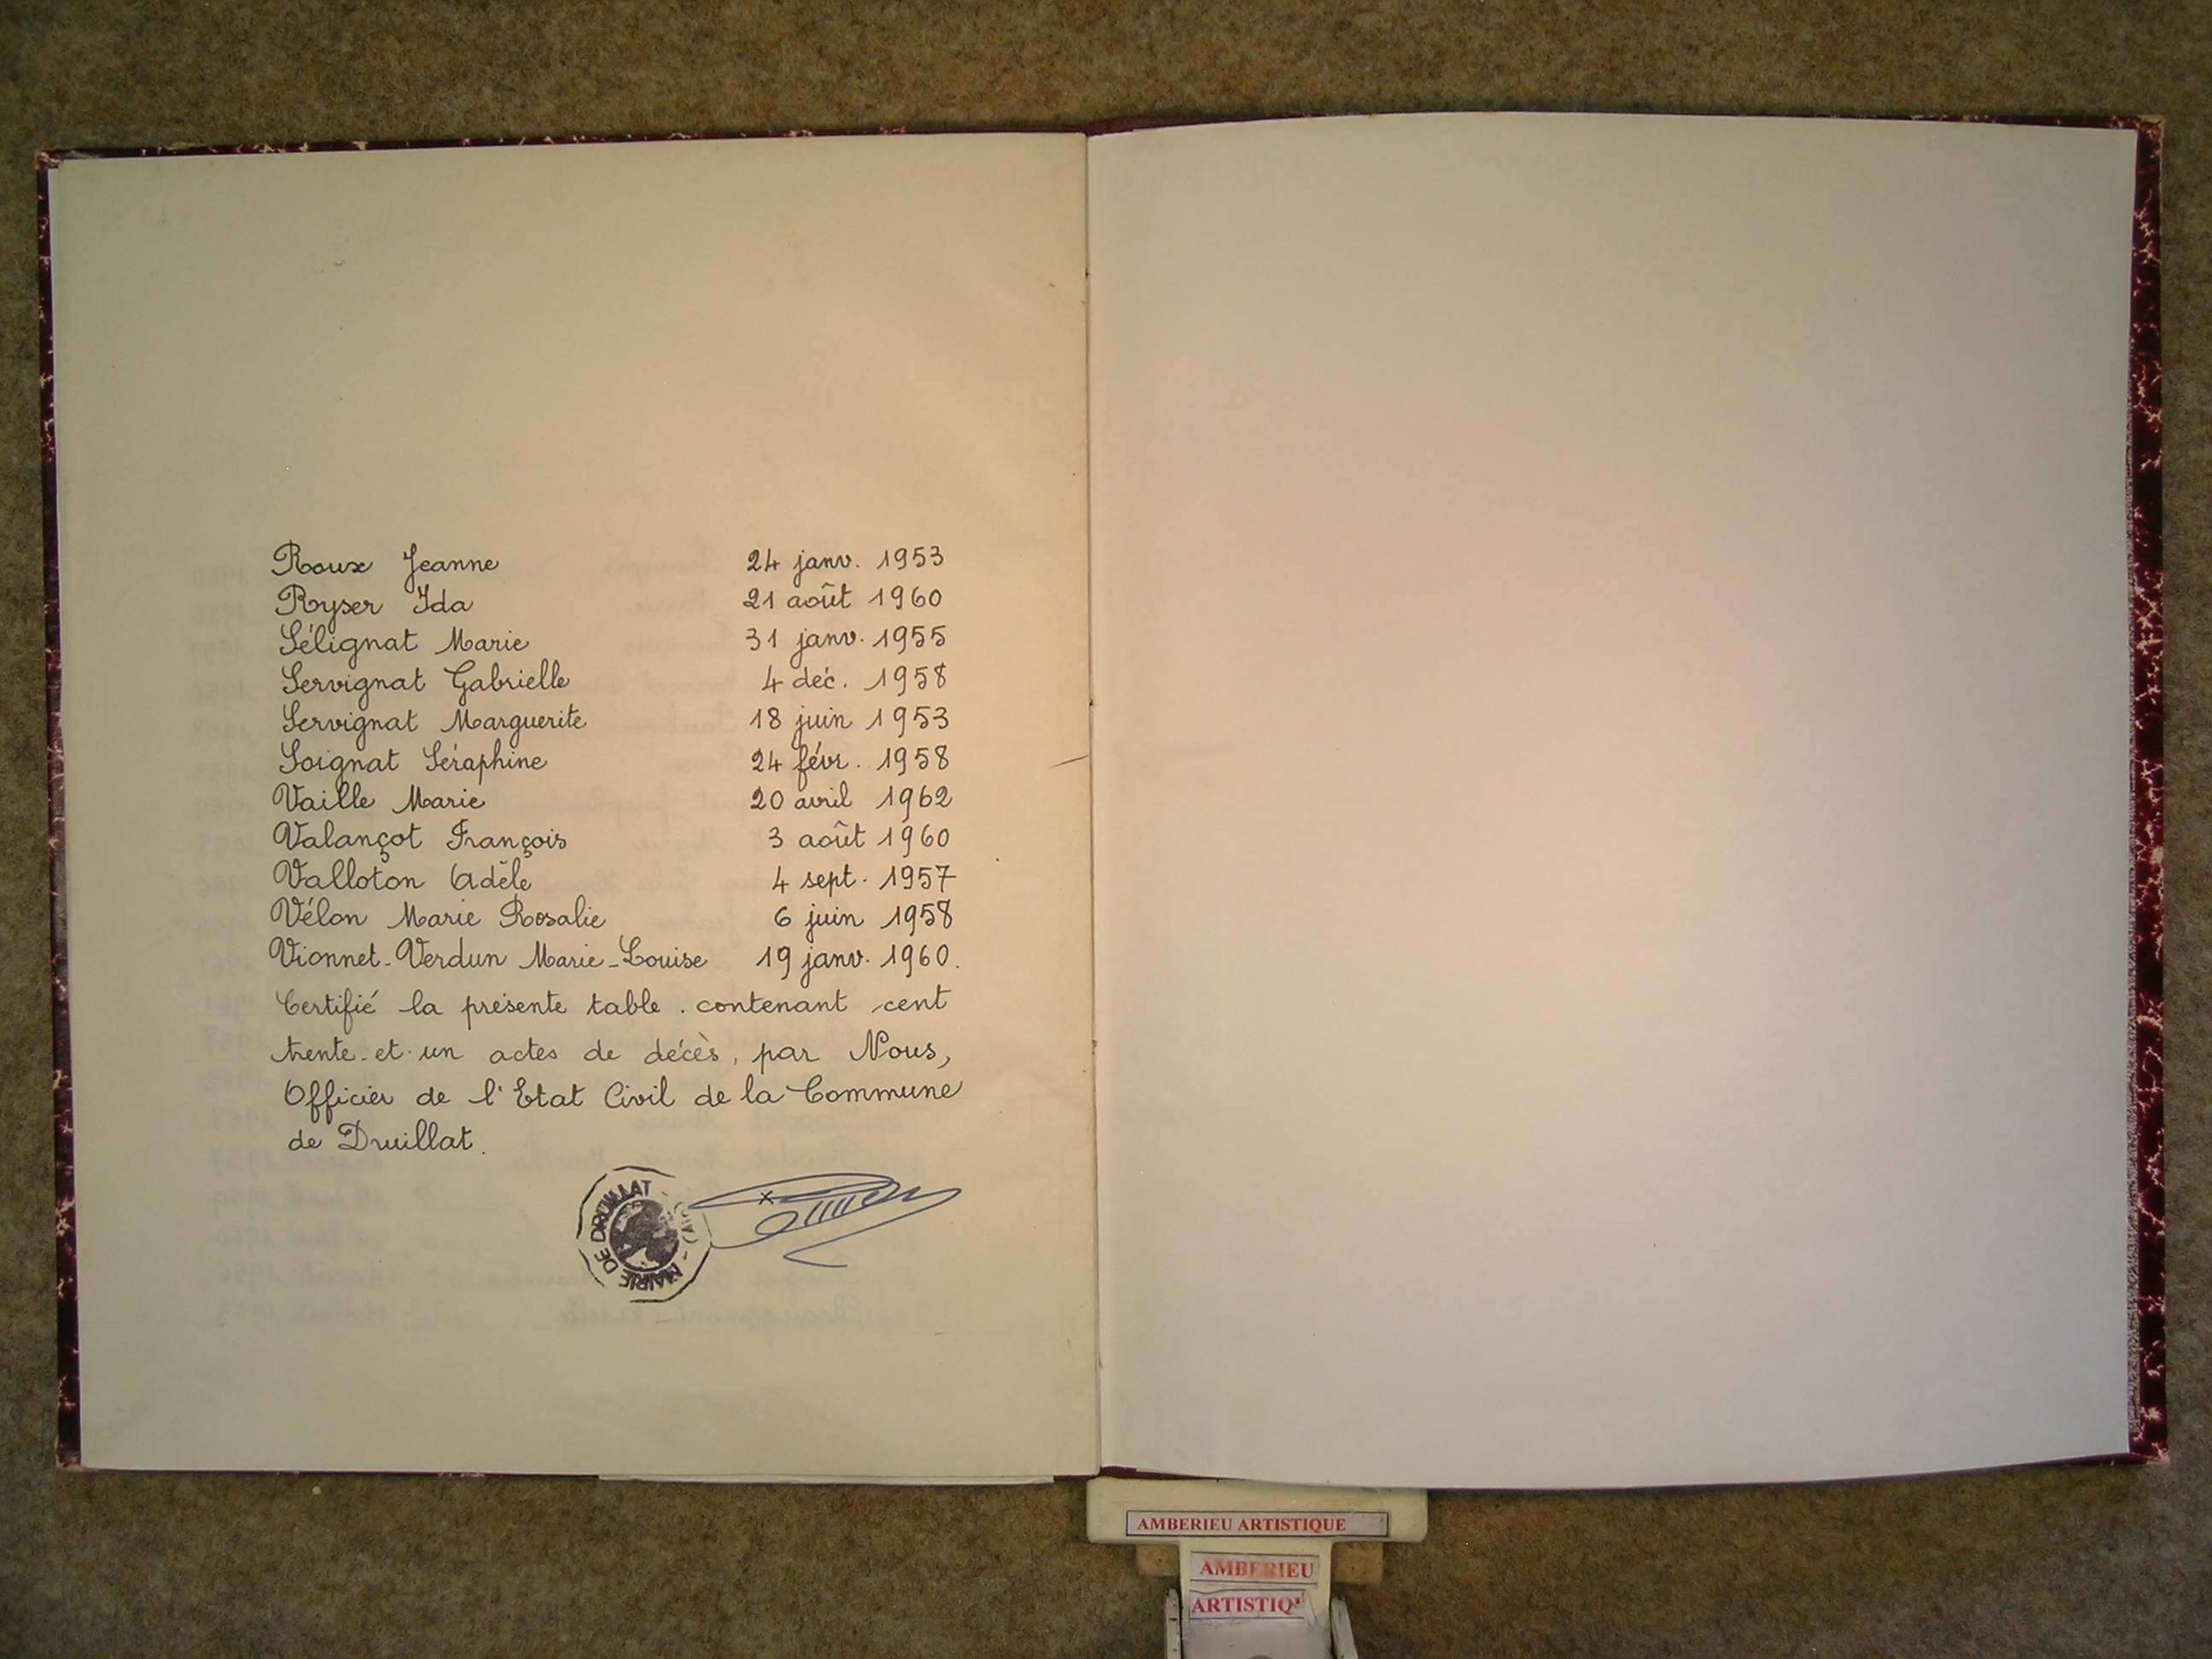 Roux Jeanne 24 janv. 1953
Ryser Ida 21 août 1960
Sélignat Marie 31 janv. 1955
Servignat Gabrielle 4 déc. 1958
Servignat Marguerite 18 juin 1953
Soignat Séraphine 24 févr. 1958
Vaille Marie 20 avril 1962
Valançot François 3 août 1960
Valloton Adèle 4 sept. 1957
Vélon Marie Rosalie 6 juin 1958
Vionnet-Verdun Marie-Louise 19 janv. 1960.
Certifié la présente table. contenant cent
trente-et-un actes de décès, par Nous,
Officier de l'Etat Civil de la Commune
de Druillat.
MAIRIE DE DRUILLAT
AMBERIEU ARTISTIQUE
AMBERIEU
ARTISTIQ